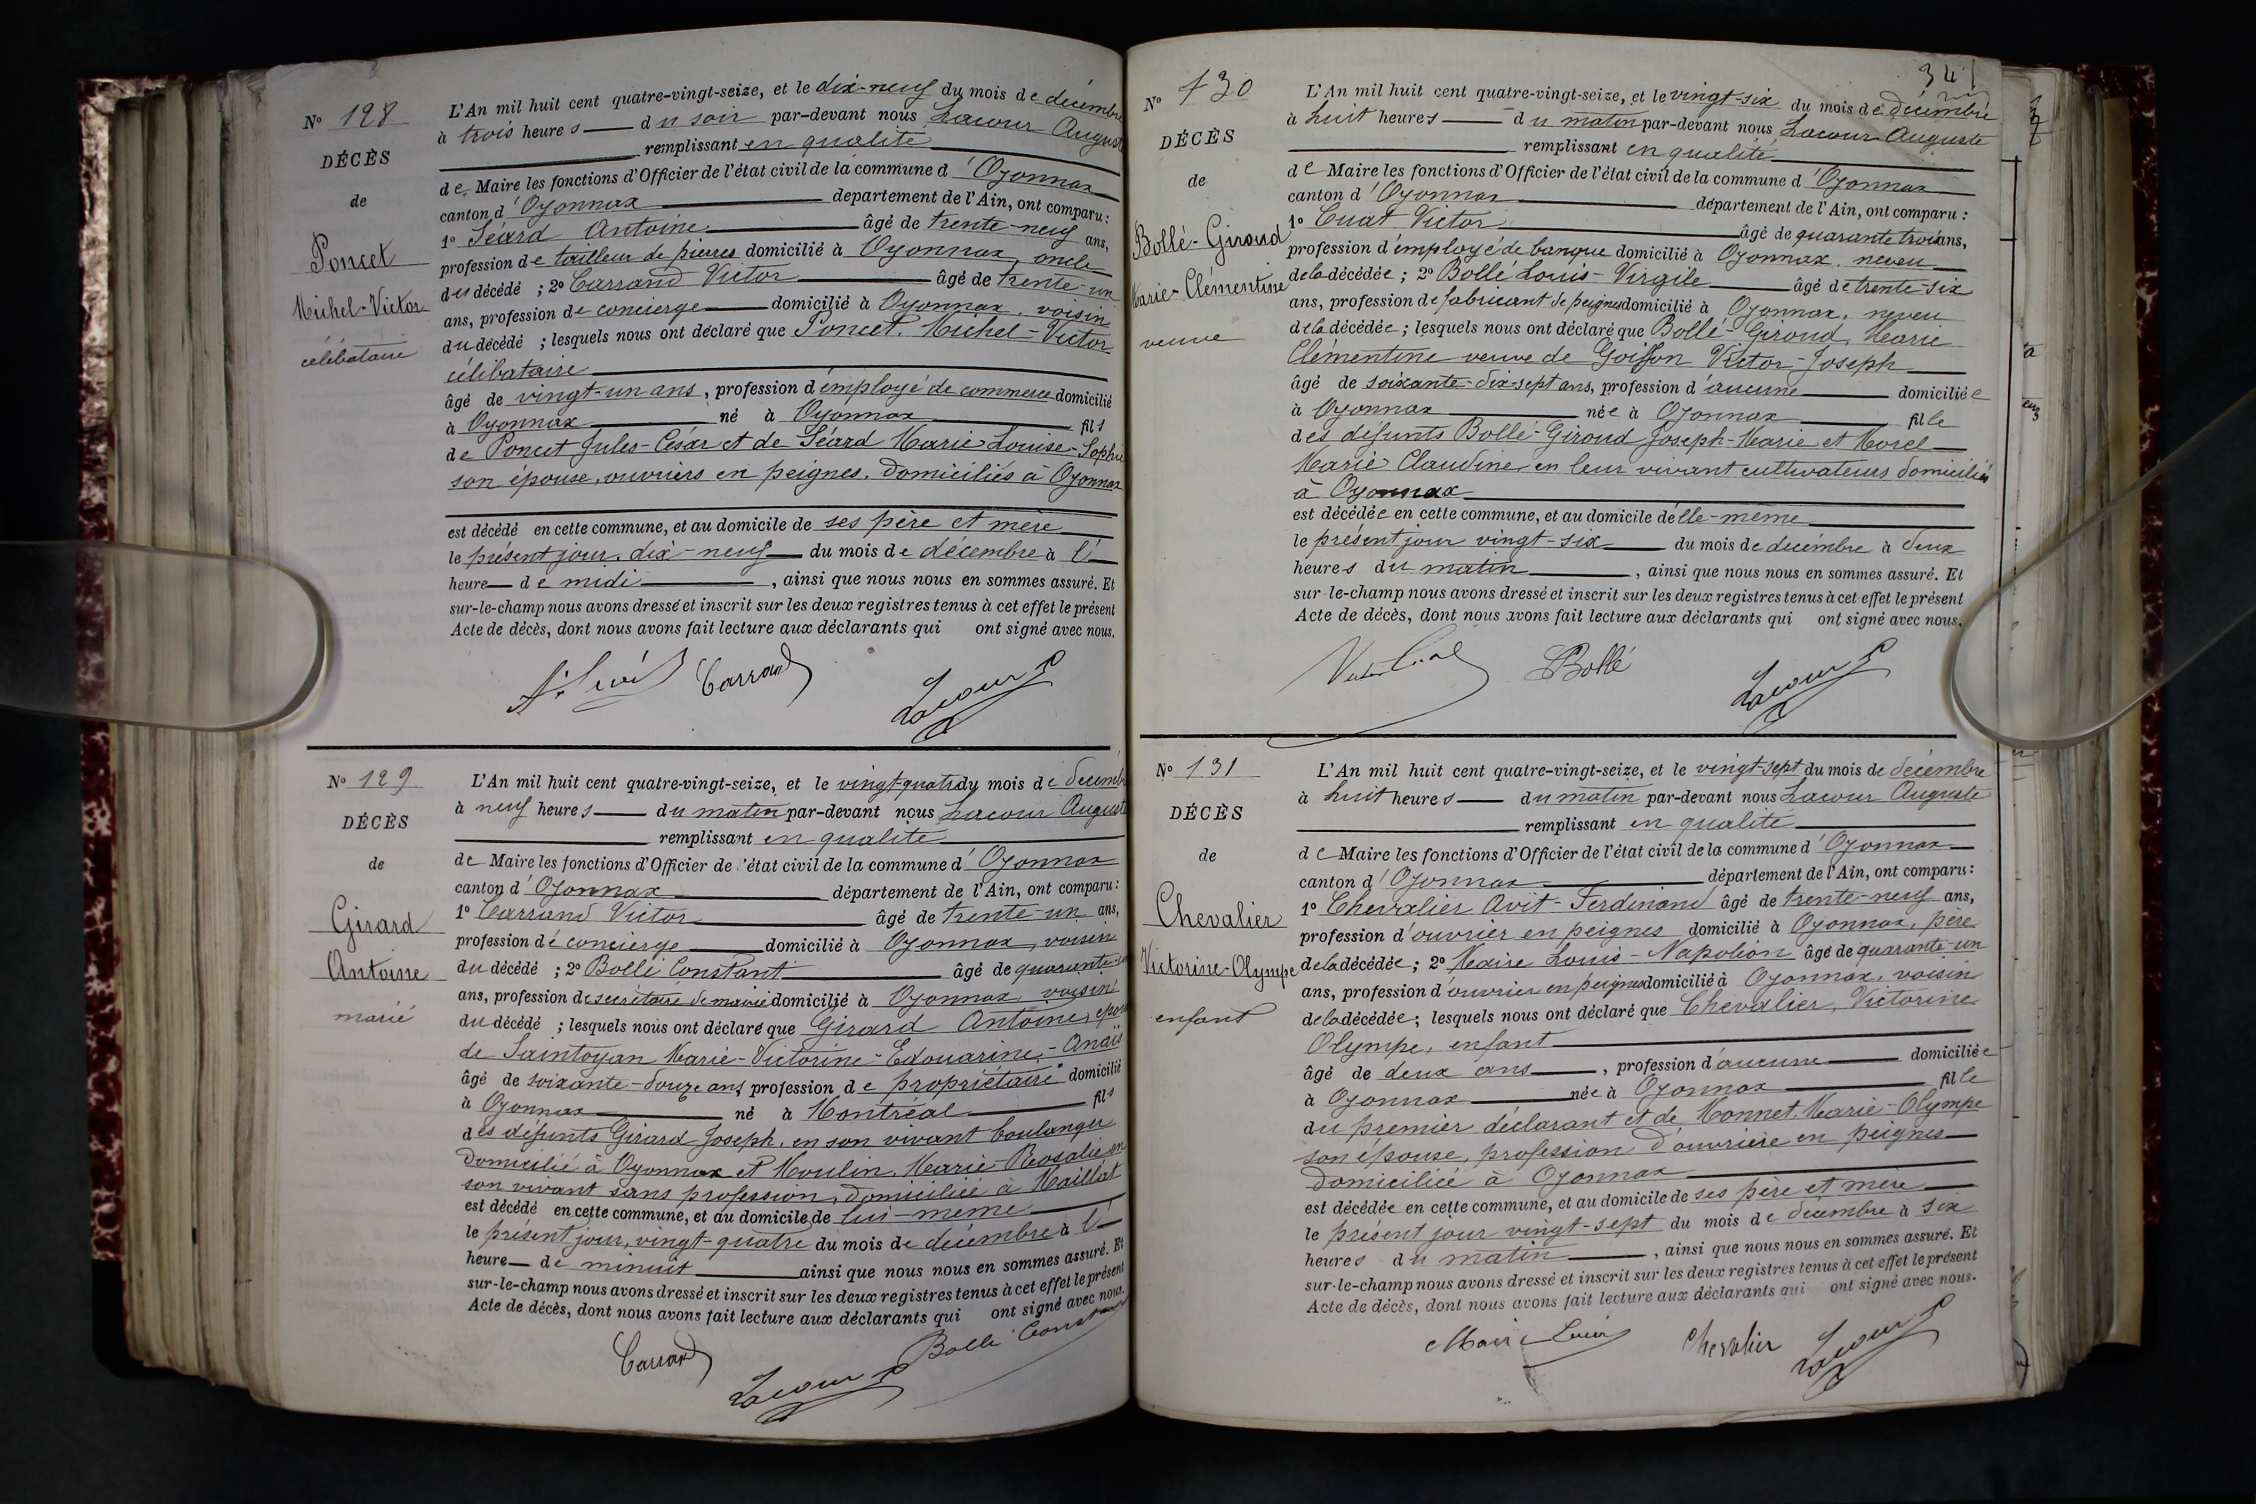 N° 128
DÉCÈS
de
Poncet
Michel-Victor
célibataire
L'An mil huit cent quatre-vingt-seize, et le dix-neuf du mois de décembre
à trois heures du soir par-devant nous Lacour Auguste
remplissant en qualité
de Maire les fonctions d'Officier de l'état civil de la commune d'Oyonnax
canton d'Oyonnax département de l'Ain, ont comparu :
1° Séard Antoine âgé de trente-neuf ans,
profession de tailleur de pierres domicilié à Oyonnax, oncle
du décédé ; 2° Carrand Victor âgé de trente-un
ans, profession de concierge domicilié à Oyonnax, voisin
du décédé ; lesquels nous ont déclaré que Poncet, Michel-Victor
célibataire
âgé de vingt-un ans, profession d'employé de commerce domicilié
à Oyonnax né à Oyonnax fils
de Poncet Jules-César et de Séard Marie-Louise-Sophie
son épouse, ouvriers en peignes, domiciliés à Oyonnax
est décédé en cette commune, et au domicile de ses père et mère
le présent jour, dix-neuf du mois de décembre à l'
heure de midi, ainsi que nous nous en sommes assuré. Et
sur-le-champ nous avons dressé et inscrit sur les deux registres tenus à cet effet le présent
Acte de décès, dont nous avons fait lecture aux déclarants qui ont signé avec nous.
Carrand
Lacour
N° 129
DÉCÈS
de
Girard
Antoine
marié
L'An mil huit cent quatre-vingt-seize, et le vingt-quatre du mois de décembre
à neuf heures du matin par-devant nous Lacour Auguste
remplissant en qualité
de Maire les fonctions d'Officier de l'état civil de la commune d'Oyonnax
canton d'Oyonnax département de l'Ain, ont comparu :
1° Carrand Victor âgé de trente-un ans,
profession de concierge domicilié à Oyonnax, voisin
du décédé ; 2° Bollé Constant âgé de quarante
ans, profession de secrétaire de mairie domicilié à Oyonnax voisin
du décédé ; lesquels nous ont déclaré que Girard Antoine, époux
de Saintoyan Marie-Victorine-Edouarine-Anaïs
âgé de soixante-douze ans, profession de propriétaire domicilié
à Oyonnax né à Montréal fils
des défunts Girard Joseph, en son vivant boulanger
domicilié à Oyonnax et Moulin, Marie-Rosalie en
son vivant sans profession, domiciliée à Maillat
est décédé en cette commune, et au domicile de lui-même
le présent jour, vingt-quatre du mois de décembre à l'
heure de minuit ainsi que nous nous en sommes assuré. Et
sur-le-champ nous avons dressé et inscrit sur les deux registres tenus à cet effet le présent
Acte de décès, dont nous avons fait lecture aux déclarants qui ont signé avec nous.
Carrand
Lacour
Bollé Constant
341
N° 130
DÉCÈS
de
Bollé-Giroud
Marie-Clémentine
veuve
L'An mil huit cent quatre-vingt-seize, et le vingt-six du mois de décembre
à huit heures du matin par-devant nous Lacour Auguste
remplissant en qualité
de Maire les fonctions d'Officier de l'état civil de la commune d'Oyonnax
canton d'Oyonnax département de l'Ain, ont comparu :
1° Cuat Victor âgé de quarante trois ans,
profession d'employé de banque domicilié à Oyonnax, neveu
de la décédée ; 2° Bollé Louis-Virgile âgé de trente-six
ans, profession de fabricant de peignes domicilié à Oyonnax, neveu
de la décédée ; lesquels nous ont déclaré que Bollé-Giroud, Marie
Clémentine veuve de Goiffon Victor-Joseph
âgé de soixante-dix-sept ans, profession d'aucune domiciliée
à Oyonnax née à Oyonnax fille
des défunts Bollé-Giroud Joseph-Marie et Morel
Marie Claudine en leur vivant cultivateurs domiciliés
à Oyonnax
est décédée en cette commune, et au domicile d'elle-même
le présent jour vingt-six du mois de décembre à deux
heures du matin, ainsi que nous nous en sommes assuré. Et
sur-le-champ nous avons dressé et inscrit sur les deux registres tenus à cet effet le présent
Acte de décès, dont nous avons fait lecture aux déclarants qui ont signé avec nous.
Bollé
Lacour
N° 131
DÉCÈS
de
Chevalier
Victorine-Olympe
enfant
L'An mil huit cent quatre-vingt-seize, et le vingt-sept du mois de décembre
à huit heures du matin par-devant nous Lacour Auguste
remplissant en qualité
de Maire les fonctions d'Officier de l'état civil de la commune d'Oyonnax
canton d'Oyonnax département de l'Ain, ont comparu :
1° Chevalier Avit-Ferdinand âgé de trente-neuf ans,
profession d'ouvrier en peignes domicilié à Oyonnax, père
de la décédée ; 2° Maire Louis-Napoléon âgé de quarante-un
ans, profession d'ouvrier en peignes domicilié à Oyonnax, voisin
de la décédée ; lesquels nous ont déclaré que Chevalier, Victorine
Olympe, enfant
âgé de deux ans, profession d'aucune domiciliée
à Oyonnax née à Oyonnax fille
du premier déclarant et de Monnet, Marie-Olympe
son épouse, profession d'ouvrière en peignes
domiciliée à Oyonnax
est décédée en cette commune, et au domicile de ses père et mère
le présent jour vingt-sept du mois de décembre à six
heures du matin, ainsi que nous nous en sommes assuré. Et
sur-le-champ nous avons dressé et inscrit sur les deux registres tenus à cet effet le présent
Acte de décès, dont nous avons fait lecture aux déclarants qui ont signé avec nous.
Maire Louis
Chevalier
Lacour